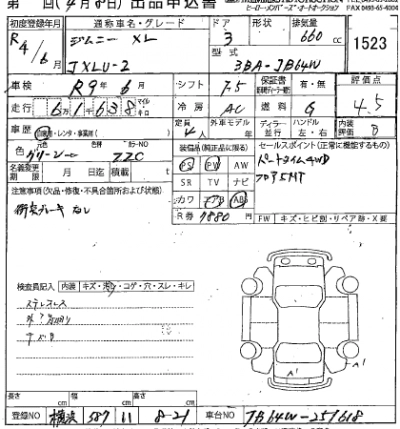 第 回(4月8日) 出品申込書
初度登録年月 通称車名・グレード ドア 形状 排気量
R4/6月 ジムニー XL 3 660cc 1523
型式
JXLU-2 3BA-JB64W
車検 R9年6月 シフト 保証書 有・無 評価点
走行 6万1千638 マイル キロ 冷房 AC 燃料 G 4.5
車歴 レンタ・事業用 定員 4人 外車モデル 年 ディーラー 並行 ハンドル 左・右 内装評価 B
色 グリーン 色替 カラーNO ZZC 装備品(純正品に限る) セールスポイント(正常に機能するもの)
名義変更期限 月 日迄 積載 t PS PW AW パートタイム4WD
SR TV ナビ フロア5MT
注意事項(欠品・修復・不具合箇所および状態) カワ エアB ABS
衝突ブレーキなし R券 7880円 FW キズ・ヒビ割・リペア跡・X要
検査員記入 内装 キズ・汚れ・コゲ・穴・スレ・キレ
A1
A1
長さ cm 幅 cm 高さ cm
登録NO 横浜 587 11 8-21 車台NO JB64W-257618